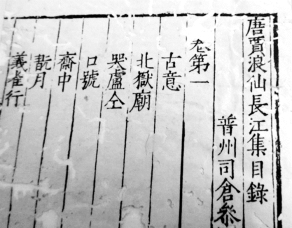 唐賈浪仙長江集目錄
普州司倉參
卷第一
古意
北嶽廟
哭盧仝
口號
齋中
翫月
義雀行